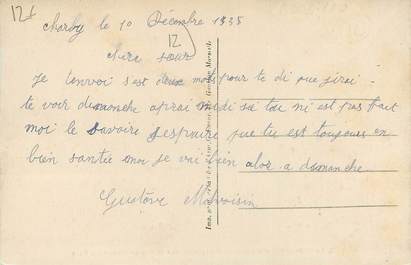 12f
Charby le 10 Décembre 1935
12
chère sœur
Je t'envoi s'est deux mots pour te di que j'irai
te voir dimanche aprirai midi si tu ni est pas fait
moi le savoire j'espaire que tu est toujours en
bien santée moi je vai bien alor a dimanche
Gustave Malvoisin